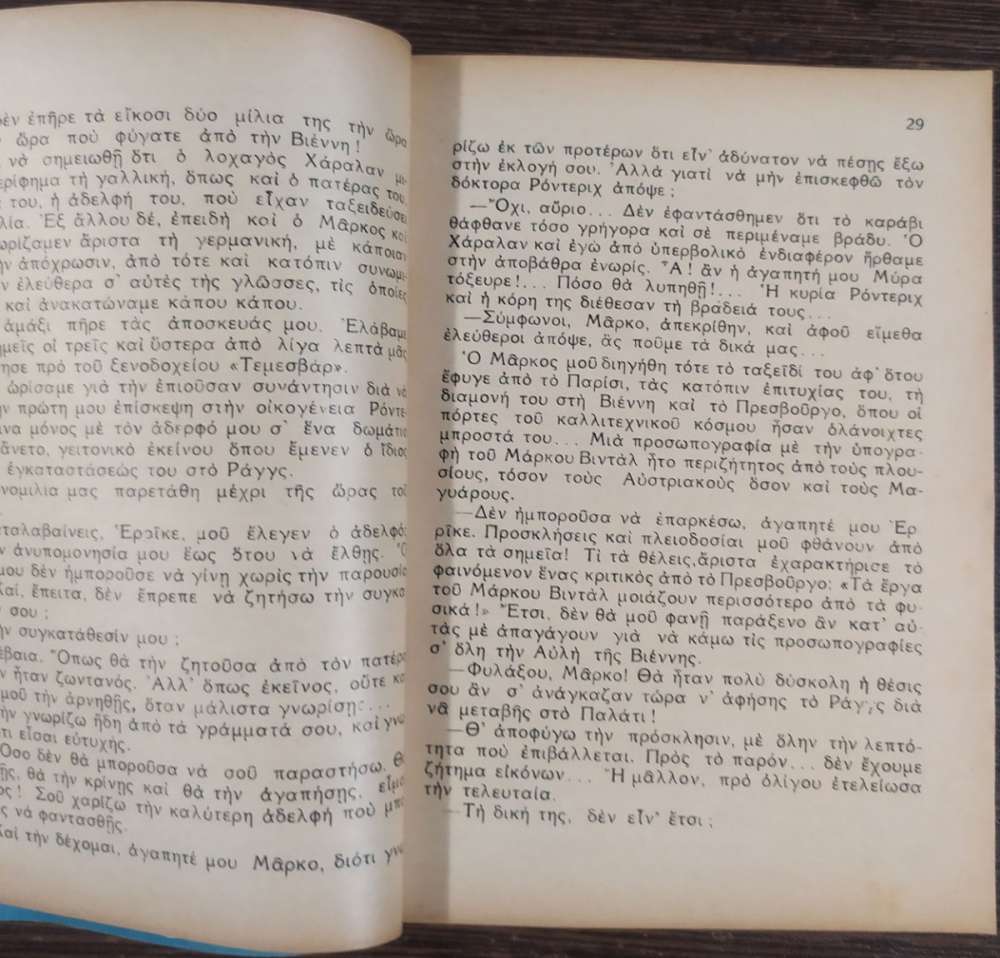 ἐπῆρε τὰ εἴκοσι δύο μίλια της τὴν ὥρα
ὥρα ποὺ φύγατε ἀπὸ τὴν Βιέννη!
νὰ σημειωθῇ ὅτι ὁ λοχαγὸς Χάραλαν
τὴ γαλλική, ὅπως καὶ ὁ πατέρας του,
του, ἡ ἀδελφή του, ποὺ εἶχαν ταξειδεύσει
Ἐξ ἄλλου δέ, ἐπειδὴ καὶ ὁ Μᾶρκος
ἄριστα τὴ γερμανική, μὲ κάποιαν
ἀπόχρωσιν, ἀπὸ τότε καὶ κατόπιν
ἐλεύθερα σ' αὐτὲς τῆς γλῶσσες, τὶς ὁποῖες
καὶ ἀνακατώναμε κάπου κάπου.
ἁμάξι πῆρε τὰς ἀποσκευάς μου. Ἐλάβαμε
οἱ τρεῖς καὶ ὕστερα ἀπὸ λίγα λεπτὰ μᾶς
πρὸ τοῦ ξενοδοχείου «Τεμεσβάρ».
ὡρίσαμε γιὰ τὴν ἐπιοῦσαν συνάντησιν διὰ νὰ
πρώτη μου ἐπίσκεψη στὴν οἰκογένεια
μόνος μὲ τὸν ἀδερφό μου σ' ἕνα δωμάτιο
γειτονικὸ ἐκείνου ὅπου ἔμενεν ὁ ἴδιος
ἐγκαταστάσεώς του στὸ Ράγγς.
μας παρετάθη μέχρι τῆς ὥρας τοῦ
Ἐρρῖκε, μοῦ ἔλεγεν ὁ ἀδελφός
ἀνυπομονησία μου ἕως ὅτου νὰ ἔλθῃς. Ὁ
μου δὲν ἠμποροῦσε νὰ γίνῃ χωρὶς τὴν παρουσία
ἔπειτα, δὲν ἔπρεπε νὰ ζητήσω τὴν
σου;
συγκατάθεσίν μου;
Ὅπως θὰ τὴν ζητοῦσα ἀπὸ τὸν πατέρα
ἦταν ζωντανός. Ἀλλ' ὅπως ἐκεῖνος, οὔτε
μοῦ τὴν ἀρνηθῇς, ὅταν μάλιστα γνωρίσῃς...
γνωρίζω ἤδη ἀπὸ τὰ γράμματά σου, καὶ
εἶσαι εὐτυχής.
Ὅσο δὲν θὰ μποροῦσα νὰ σοῦ παραστήσω.
θὰ τὴν κρίνῃς καὶ θὰ τὴν ἀγαπήσῃς,
Σοῦ χαρίζω τὴν καλύτερη ἀδελφὴ ποὺ
νὰ φαντασθῇς.
Καὶ τὴν δέχομαι, ἀγαπητέ μου Μᾶρκο, διότι
29
ρίζω ἐκ τῶν προτέρων ὅτι εἶν' ἀδύνατον νὰ πέσῃς ἔξω
στὴν ἐκλογή σου. Ἀλλὰ γιατὶ νὰ μὴν ἐπισκεφθῶ τὸν
δόκτορα Ρόντεριχ ἀπόψε;
—Ὄχι, αὔριο... Δὲν ἐφαντάσθημεν ὅτι τὸ καράβι
θἄφθανε τόσο γρήγορα καὶ σὲ περιμέναμε βράδυ. Ὁ
Χάραλαν καὶ ἐγὼ ἀπὸ ὑπερβολικὸ ἐνδιαφέρον ἤρθαμε
στὴν ἀποβάθρα ἐνωρίς. Ἄ! ἂν ἡ ἀγαπητή μου Μύρα
τὄξευρε!... Πόσο θὰ λυπηθῇ!... Ἡ κυρία Ρόντεριχ
καὶ ἡ κόρη της διέθεσαν τὴ βραδειά τους...
—Σύμφωνοι, Μᾶρκο, ἀπεκρίθην, καὶ ἀφοῦ εἴμεθα
ἐλεύθεροι ἀπόψε, ἂς ποῦμε τὰ δικά μας...
Ὁ Μᾶρκος μοῦ διηγήθη τότε τὸ ταξεῖδί του ἀφ' ὅτου
ἔφυγε ἀπὸ τὸ Παρίσι, τὰς κατόπιν ἐπιτυχίας του, τὴ
διαμονή του στὴ Βιέννη καὶ τὸ Πρεσβοῦργο, ὅπου οἱ
πόρτες τοῦ καλλιτεχνικοῦ κόσμου ἦσαν ὁλάνοιχτες
μπροστά του... Μιὰ προσωπογραφία μὲ τὴν ὑπογρα-
φὴ τοῦ Μάρκου Βιντὰλ ἦτο περιζήτητος ἀπὸ τοὺς πλου-
σίους, τόσον τοὺς Αὐστριακοὺς ὅσον καὶ τοὺς Μα-
γυάρους.
—Δὲν ἠμποροῦσα νὰ ἐπαρκέσω, ἀγαπητέ μου Ἐρ
ρῖκε. Προσκλήσεις καὶ πλειοδοσίαι μοῦ φθάνουν ἀπὸ
ὅλα τὰ σημεῖα! Τὶ τὰ θέλεις,ἄριστα ἐχαρακτήρισε τὸ
φαινόμενον ἕνας κριτικὸς ἀπὸ τὸ Πρεσβοῦργο: «Τὰ ἔργα
τοῦ Μάρκου Βιντὰλ μοιάζουν περισσότερο ἀπὸ τὰ φυ-
σικά!» Ἔτσι, δὲν θὰ μοῦ φανῇ παράξενο ἂν κατ' αὐ-
τὰς μὲ ἀπαγάγουν γιὰ νὰ κάμω τὶς προσωπογραφίες
σ' ὅλη τὴν Αὐλὴ τῆς Βιέννης.
—Φυλάξου, Μᾶρκο! Θὰ ἦταν πολὺ δύσκολη ἡ θέσις
σου ἂν σ' ἀνάγκαζαν τώρα ν' ἀφήσῃς τὸ Ράγγς διὰ
νὰ μεταβῇς στὸ Παλάτι!
—Θ' ἀποφύγω τὴν πρόσκλησιν, μὲ ὅλην τὴν λεπτό-
τητα ποὺ ἐπιβάλλεται. Πρὸς τὸ παρόν... δὲν ἔχουμε
ζήτημα εἰκόνων... Ἢ μᾶλλον, πρὸ ὀλίγου ἐτελείωσα
τὴν τελευταία.
—Τὴ δική της, δὲν εἶν' ἔτσι;